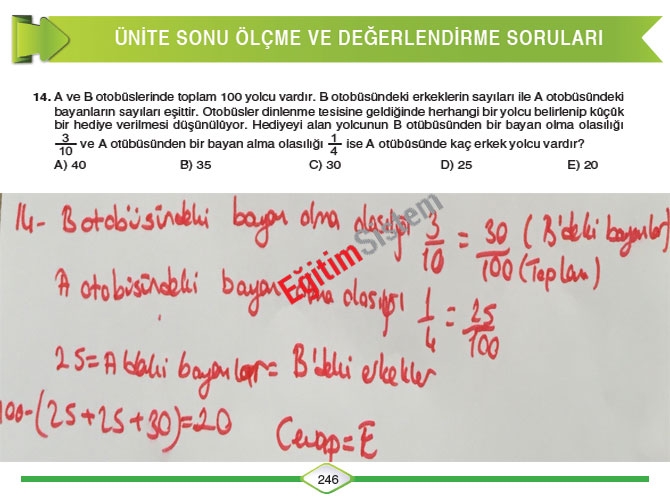 ÜNİTE SONU ÖLÇME VE DEĞERLENDİRME SORULARI
14. A ve B otobüslerinde toplam 100 yolcu vardır. B otobüsündeki erkeklerin sayıları ile A otobüsündeki
bayanların sayıları eşittir. Otobüsler dinlenme tesisine geldiğinde herhangi bir yolcu belirlenip küçük
bir hediye verilmesi düşünülüyor. Hediyeyi alan yolcunun B otübüsünden bir bayan olma olasılığı
3/10 ve A otübüsünden bir bayan alma olasılığı 1/4 ise A otübüsünde kaç erkek yolcu vardır?
A) 40 B) 35 C) 30 D) 25 E) 20
14- B otobüsündeki bayan olma olasılığı 3/10 = 30/100 (B'deki bayanlar) (Toplam)
A otobüsündeki bayan olma olasılığı 1/4 = 25/100
25 = A'daki bayanlar = B'deki erkekler
100-(25+25+30)=20
Cevap = E
EğitimSistem
246